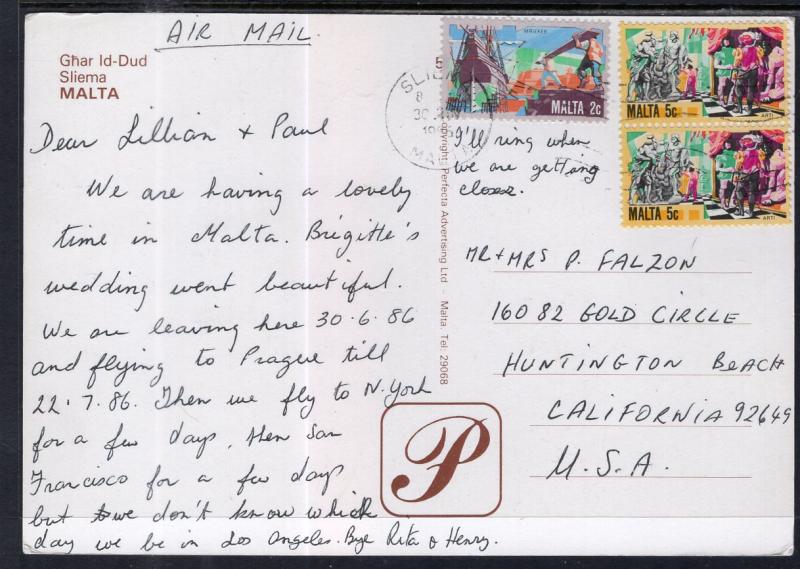 AIR MAIL.
Għar Id-Dud
Sliema
MALTA
Dear Lillian + Paul
We are having a lovely
time in Malta. Brigitte's
wedding went beautiful.
We are leaving here 30.6.86
and flying to Prague till
22.7.86. Then we fly to N.York
for a few days, then San
Francisco for a few days
but we don't know which
day we be in Los Angeles. Bye Rita & Henry.
I'll ring when
we are getting
closer.
MALTA 2c
MALTA 5c
ARTI
MALTA 5c
ARTI
Copyright: Perfecta Advertising Ltd - Malta. Tel: 29068
MR + MRS P. FALZON
16082 GOLD CIRCLE
HUNTINGTON BEACH
CALIFORNIA 92649
U.S.A.
P